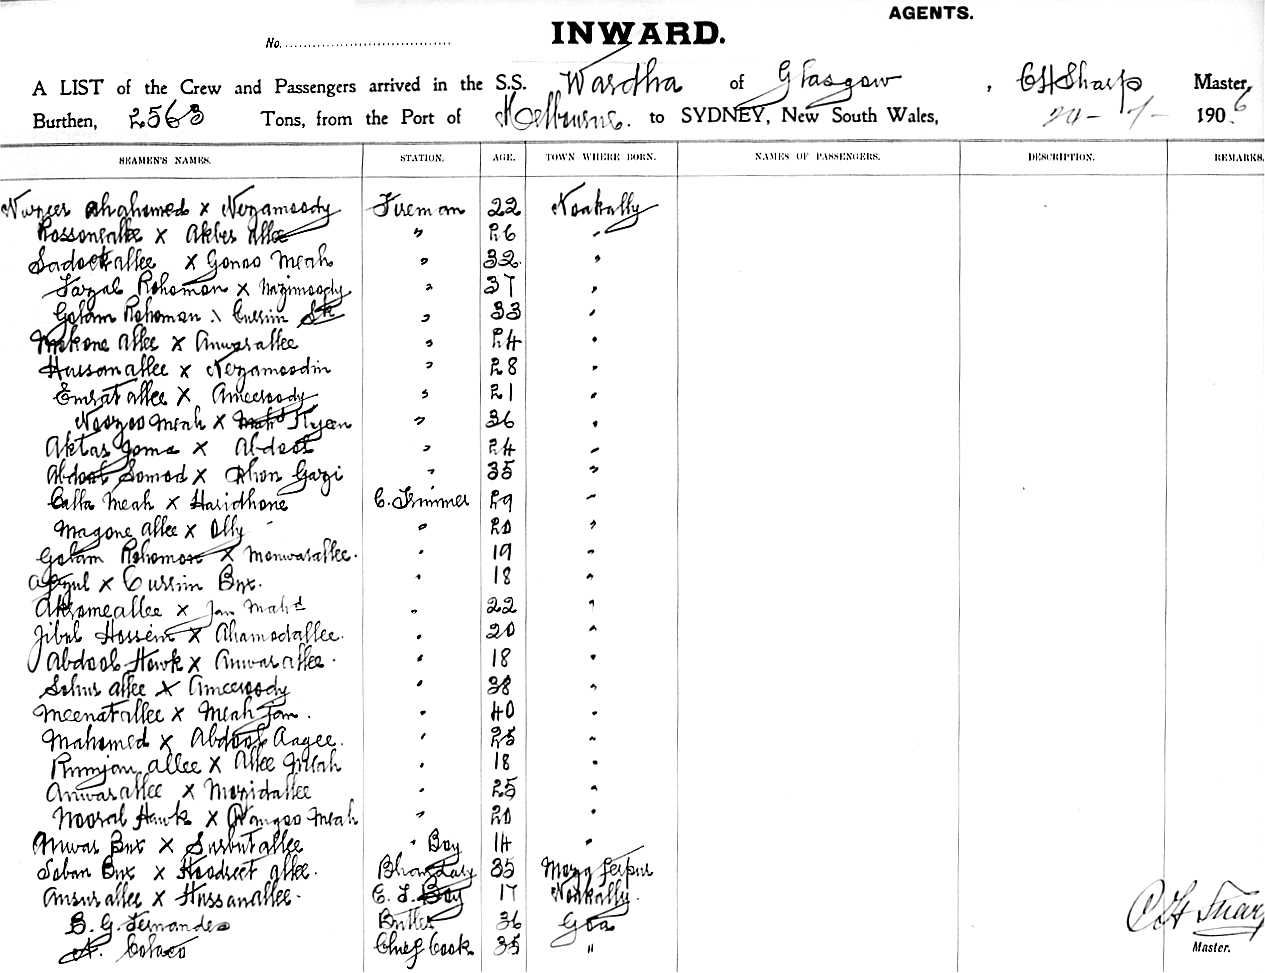 AGENTS.
No.
INWARD.
A LIST of the Crew and Passengers arrived in the S.S. Wardha of Glasgow, CH Sharp Master,
Burthen, 2563 Tons, from the Port of Melbourne. to SYDNEY, New South Wales, 24 - 7 - 1906
SEAMEN'S NAMES. STATION. AGE. TOWN WHERE BORN. NAMES OF PASSENGERS. DESCRIPTION. REMARKS.
Nurzeer Mahomed x Nezamoody Fireman 22 Noakally
x Akber Allee " 26 "
Sadockallee x Gonoo Meah " 32 "
Fazal Rohoman x Nazimoody " 37 "
Golam Rohoman x Cussim Sk " 33 "
Allee x Anwarallee " 24 "
Hassanallee x Nezamoodin " 28 "
Emratallee x Ameeroody " 21 "
Meah x Mahd " 36 "
Aktar x Abdool " 24 "
Abdool Somod x Gazi " 35 "
Calla Meah x Haridhone C. Trimmer 29 "
Magone Allee x Olly " 20 "
Golam Rohoman x Monwarallee. " 19 "
x Cussim Bux. " 18 "
Akromeallee x Jan Mahd " 22 "
Jibul Hossein x Ahamodallee. " 20 "
Abdool Hawk x Anwarallee. " 18 "
Allee x Ameeroody " 38 "
Meenatallee x Meah Jan. " 40 "
Mahomed x Abdool " 25 "
Rumjan Allee x Allee Meah " 18 "
Anwarallee x Mozidallee " 25 "
Nooral Hawk x Meah " 20 "
Anwar Bux x Surbutallee " Boy 14 "
Soban Bux x Allee. Bhandary 35
Ansurallee x Hussanallee. C. T. Boy 17 Noakally.
B. G. Fernandes Butler 36 Goa
A. Colaco Chief Cook 35 "
CH Sharp
Master.